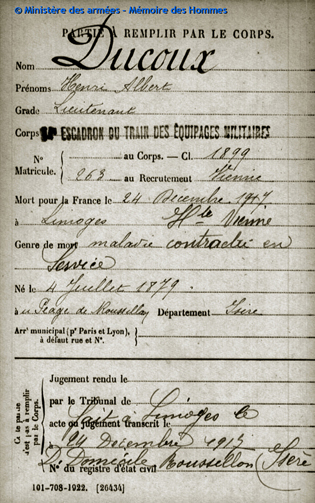 © Ministère des armées - Mémoire des Hommes
PARTIE À REMPLIR PAR LE CORPS.
Nom Ducoux
Prénoms Henri Albert
Grade Lieutenant
Corps ESCADRON DU TRAIN DES ÉQUIPAGES MILITAIRES
N° au Corps. — Cl. 1899
Matricule. 263 au Recrutement Vienne
Mort pour la France le 24 Décembre 1917
à Limoges Hte Vienne
Genre de mort maladie contractée en
Service
Né le 4 Juillet 1879.
à Péage de Roussillon Département Isère
Arrt municipal (pr Paris et Lyon),
à défaut rue et N°.
Cette partie
n'est pas à remplir
par le Corps.
Jugement rendu le
par le Tribunal de
acte ou jugement transcrit le
Fait à Limoges le
24 Décembre 1917
Dt Domicile Roussillon (Isère)
N° du registre d'état civil
101-708-1922. [26434]